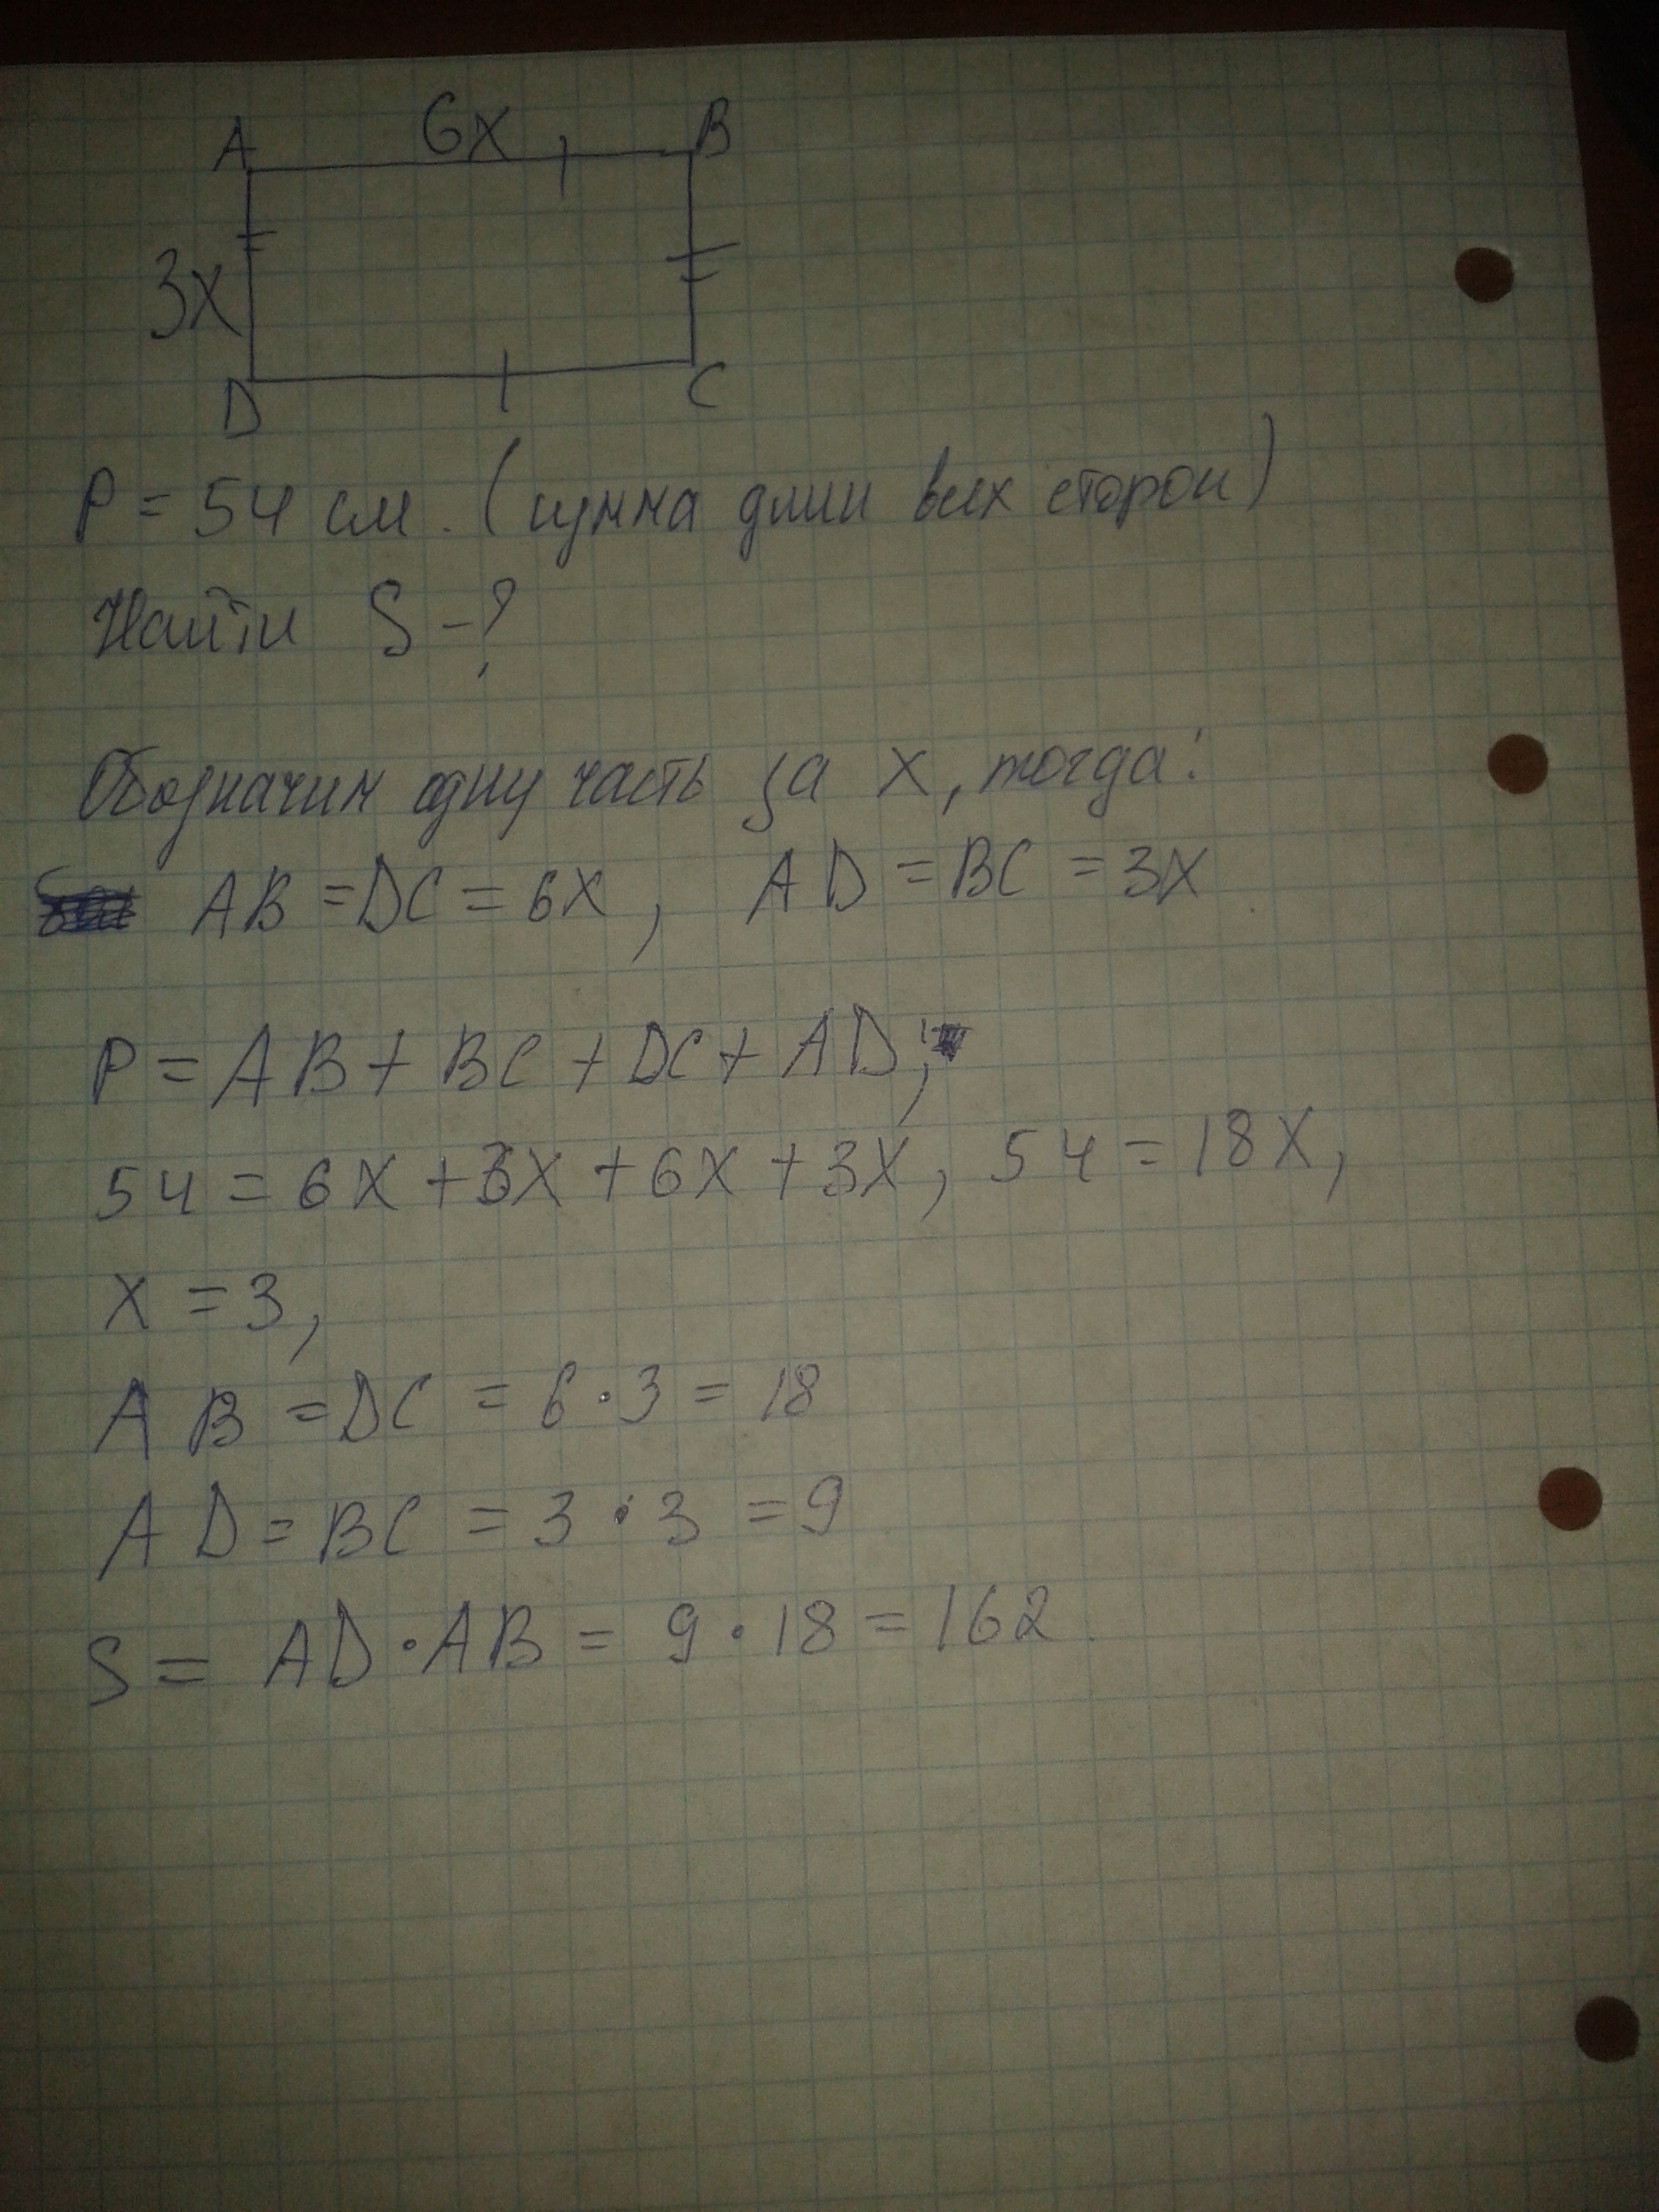 A 6x B
3x
D C
P = 54 см. (сумма длин всех сторон)
Найти S-?
Обозначим одну часть за x, тогда:
AB = DC = 6x, AD = BC = 3x
P = AB + BC + DC + AD;
54 = 6x + 3x + 6x + 3x, 54 = 18x,
x = 3,
AB = DC = 6 · 3 = 18
AD = BC = 3 · 3 = 9
S = AD · AB = 9 · 18 = 162.